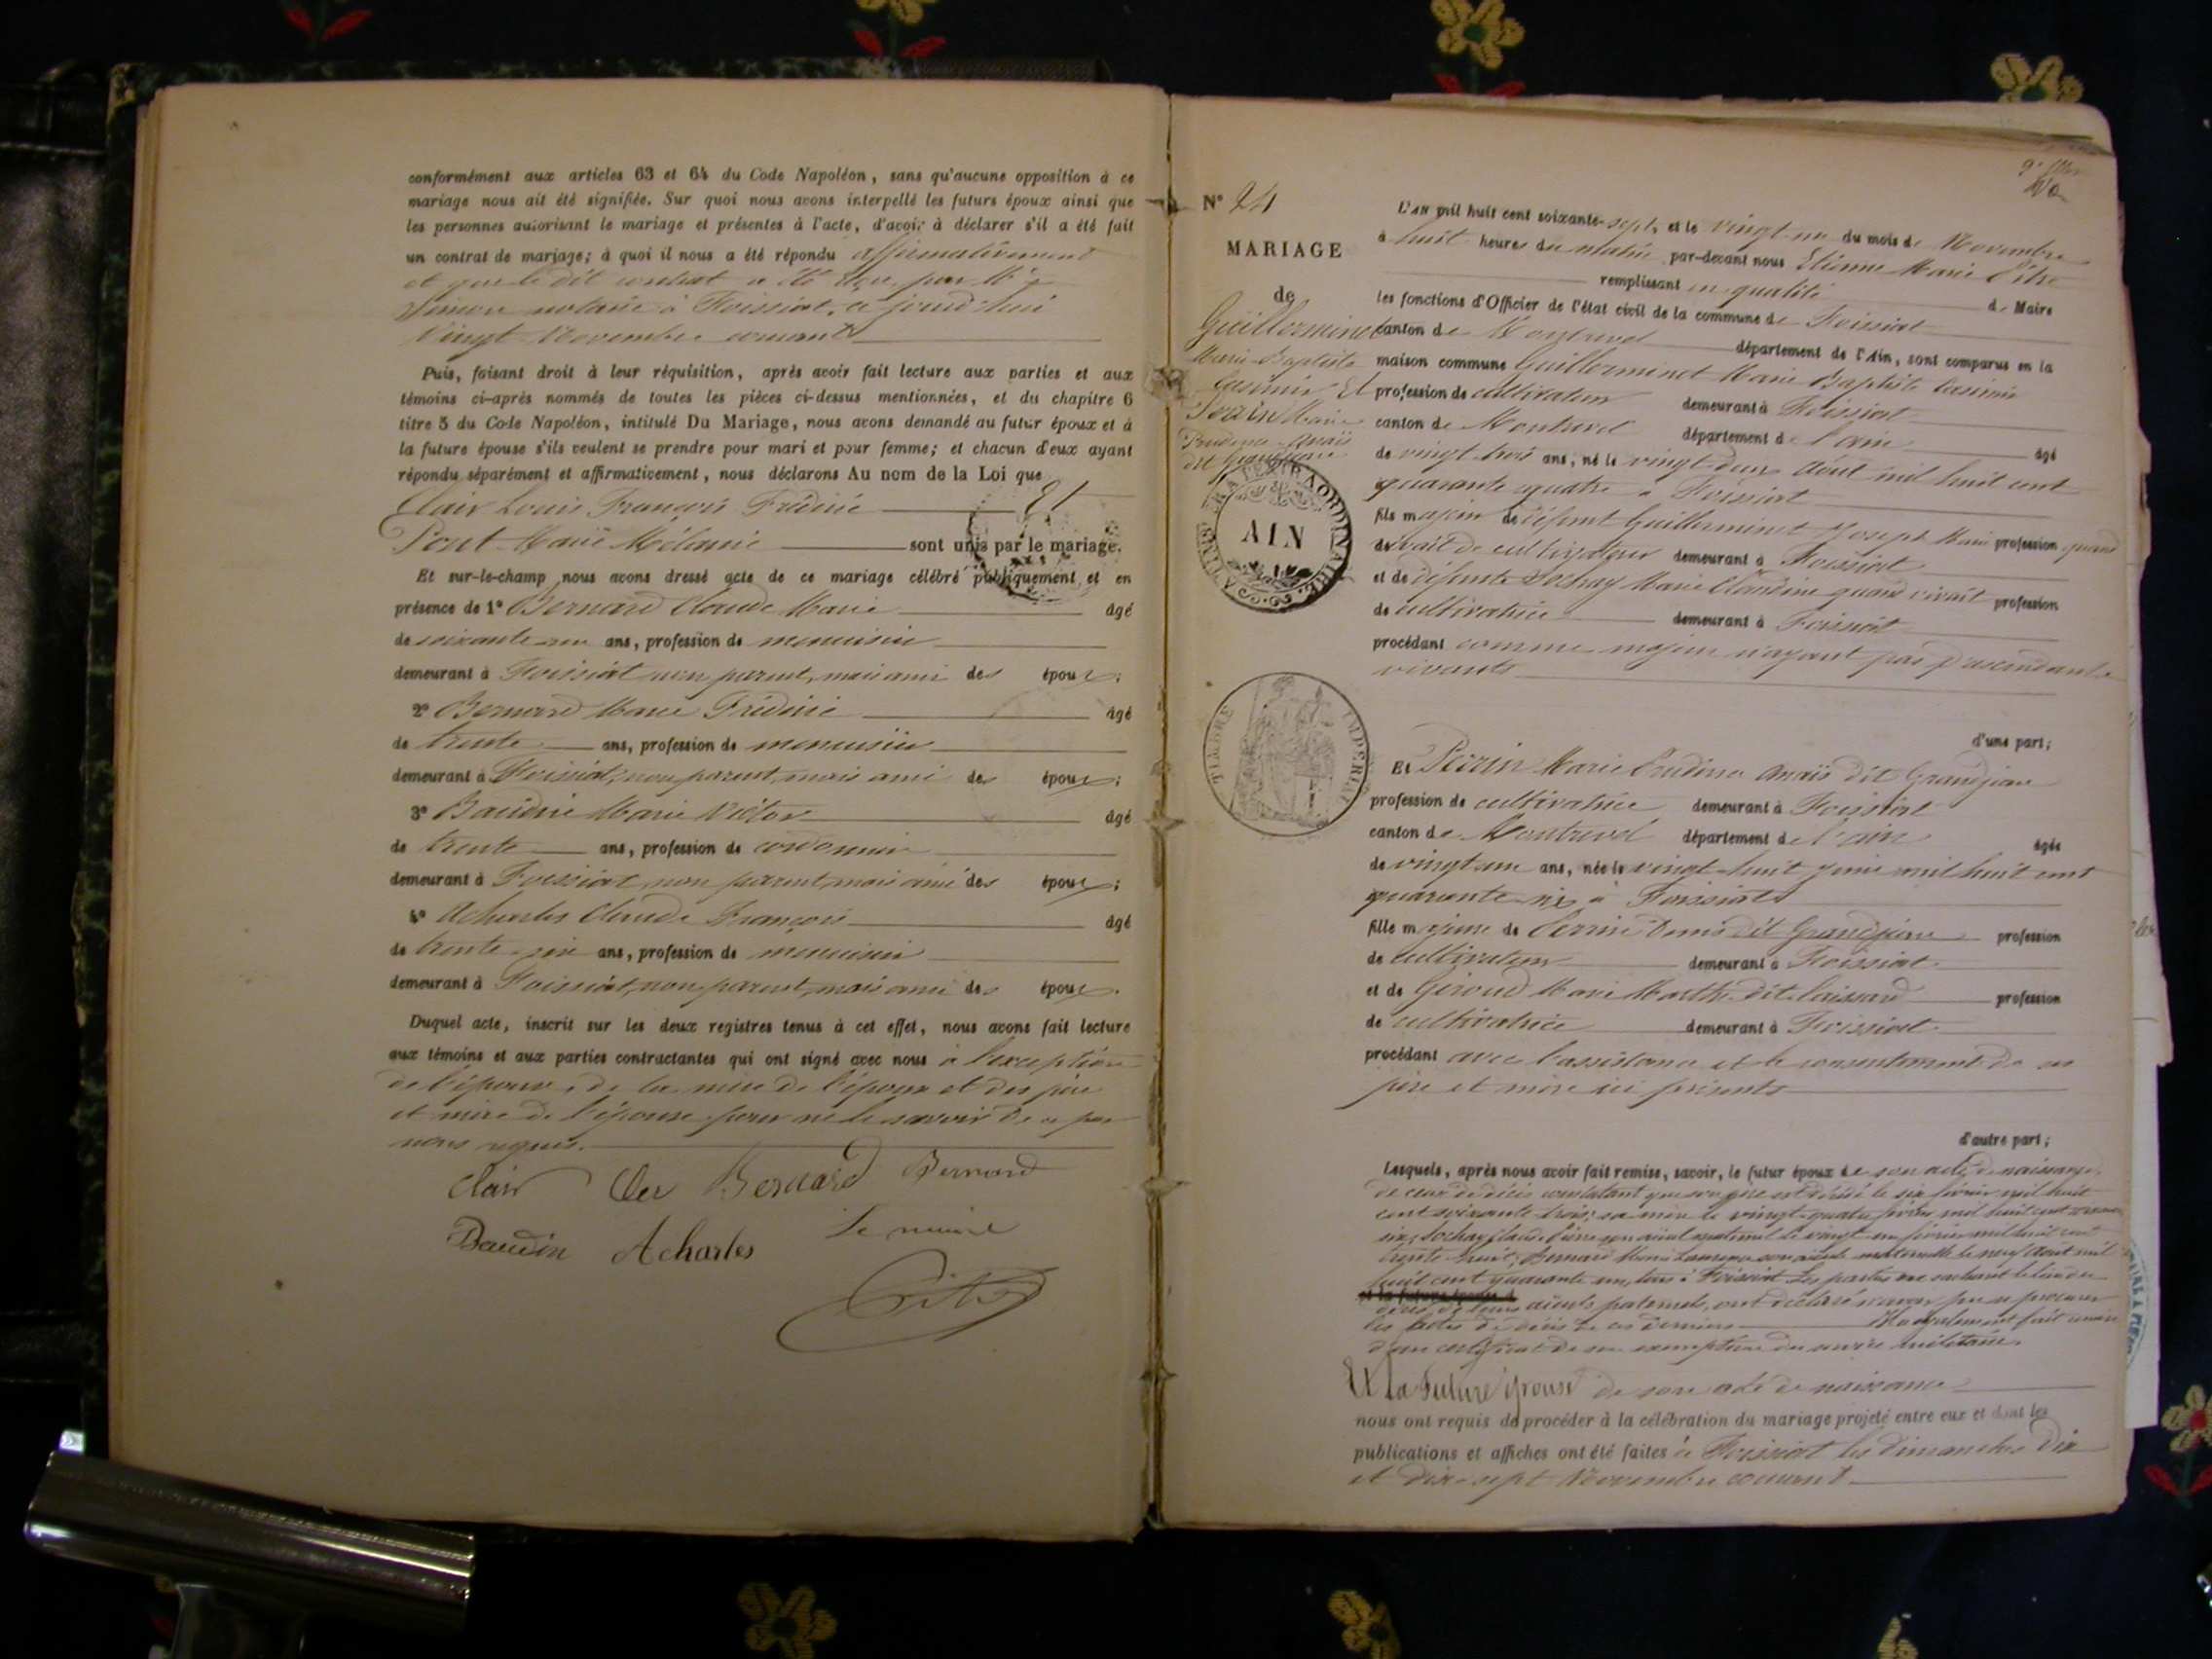 conformément aux articles 63 et 64 du Code Napoléon, sans qu'aucune opposition à ce
mariage nous ait été signifiée. Sur quoi nous avons interpellé les futurs époux ainsi que
les personnes autorisant le mariage et présentes à l'acte, d'avoir à déclarer s'il a été fait
un contrat de mariage; à quoi il nous a été répondu affirmativement
et que le dit contrat a été reçu par Me
Simon notaire à Foissiat, ce jourd'hui
vingt Novembre courant
Puis, faisant droit à leur réquisition, après avoir fait lecture aux parties et aux
témoins ci-après nommés de toutes les pièces ci-dessus mentionnées, et du chapitre 6
titre 5 du Code Napoléon, intitulé Du Mariage, nous avons demandé au futur époux et à
la future épouse s'ils veulent se prendre pour mari et pour femme; et chacun d'eux ayant
répondu séparément et affirmativement, nous déclarons Au nom de la Loi que
Clair Louis François Frédéric Et
Pont Marie Mélanie sont unis par le mariage.
Et sur-le-champ nous avons dressé acte de ce mariage célébré publiquement et en
présence de 1° Bernard Claude Marie âgé
de soixante ans, profession de menuisier
demeurant à Foissiat non parent, mais ami des époux;
2° Bernard Marie Frédéric âgé
de trente ans, profession de menuisier
demeurant à Foissiat, non parent, mais ami des époux;
3° Baudin Marie Victor âgé
de trente ans, profession de cordonnier
demeurant à Foissiat, non parent, mais ami des époux;
4° Acharles Claude François âgé
de trente six ans, profession de menuisier
demeurant à Foissiat, non parent, mais ami des époux.
Duquel acte, inscrit sur les deux registres tenus à cet effet, nous avons fait lecture
aux témoins et aux parties contractantes qui ont signé avec nous à l'exception
de l'épouse, de la mère de l'époux et des père
et mère de l'épouse pour ne le savoir de ce par
nous requis.
Clair Bernard Bernard
Baudin Acharles Le maire
N° 24
MARIAGE
de
Guillerminet
Marie Baptiste
Casimir Et
Perrin Marie
Prudence Anaïs
dit Grandjean
AIN
TIMBRE IMPÉRIAL
L'AN mil huit cent soixante-sept, et le vingt-un du mois de Novembre
à huit heures du matin par-devant nous Etienne Marie Pitre
remplissant en qualité de Maire
les fonctions d'Officier de l'état civil de la commune de Foissiat
canton de Montrevel département de l'Ain, sont comparus en la
maison commune Guillerminet Marie Baptiste Casimir
profession de cultivateur demeurant à Foissiat
canton de Montrevel département de l'ain âgé
de vingt trois ans, né le vingt deux Août mil huit cent
quarante quatre à Foissiat
fils majeur de défunt Guillerminet Joseph Marie profession quand
vivait de cultivateur demeurant à Foissiat
et de défunte Sochay Marie Claudine quand vivait profession
de cultivatrice demeurant à Foissiat
procédant comme majeur n'ayant pas d'ascendants
vivants
d'une part;
Et Perrin Marie Prudence Anaïs dit Grandjean
profession de cultivatrice demeurant à Foissiat
canton de Montrevel département de l'ain âgée
de vingt un ans, née le vingt-huit juin mil huit cent
quarante six à Foissiat
fille majeure de Perrin Denis dit Grandjean profession
de cultivateur demeurant à Foissiat
et de Giroud Marie Marthe dit laissard profession
de cultivatrice demeurant à Foissiat
procédant avec l'assistance et le consentement de ses
père et mère ici présents
d'autre part;
Lesquels, après nous avoir fait remise, savoir, le futur époux de son acte de naissance,
de ceux de décès constatant que son père est décédé le six février mil huit
cent soixante trois; sa mère le vingt-quatre février mil huit cent
Sochay Claude Pierre son aïeul maternel le vingt-un février mil huit cent
trente-huit; Bernard Marie son aïeule maternelle le neuf Août mil
huit cent quarante un, tous à Foissiat. Les parties ne sachant le lieu du
décès de leurs aïeuls paternels, ont déclaré n'avoir pu se procurer
les actes de décès de ces derniers Il a également fait remise
d'un certificat de son exemption du service militaire.
Et la Future épouse de son acte de naissance
nous ont requis de procéder à la célébration du mariage projeté entre eux et dont les
publications et affiches ont été faites à Foissiat les dimanches dix
et dix-sept Novembre courant